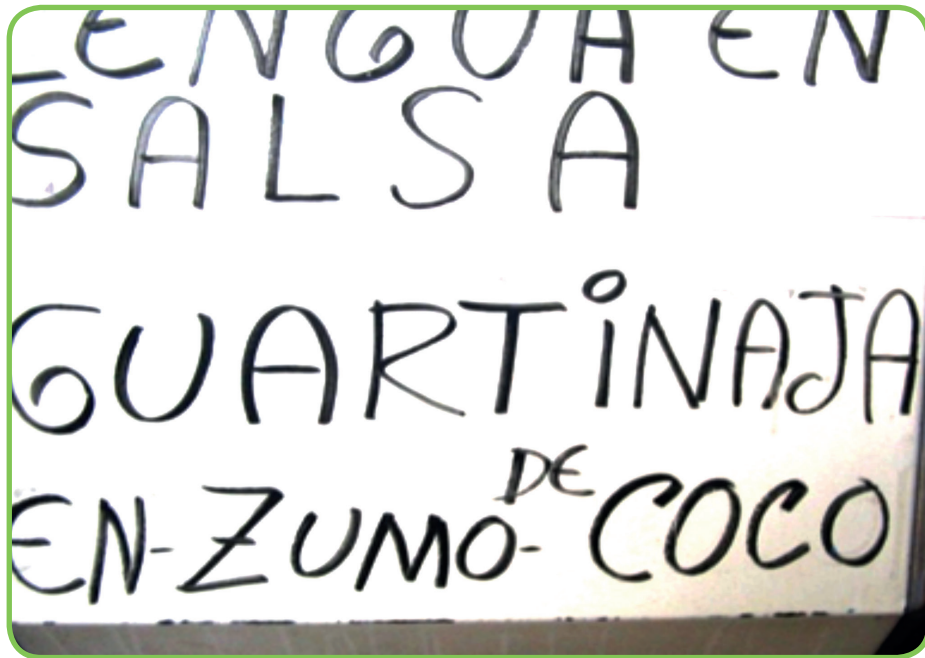 LENGUA EN
SALSA
GUARTiNAJA
EN-ZUMO-DE COCO